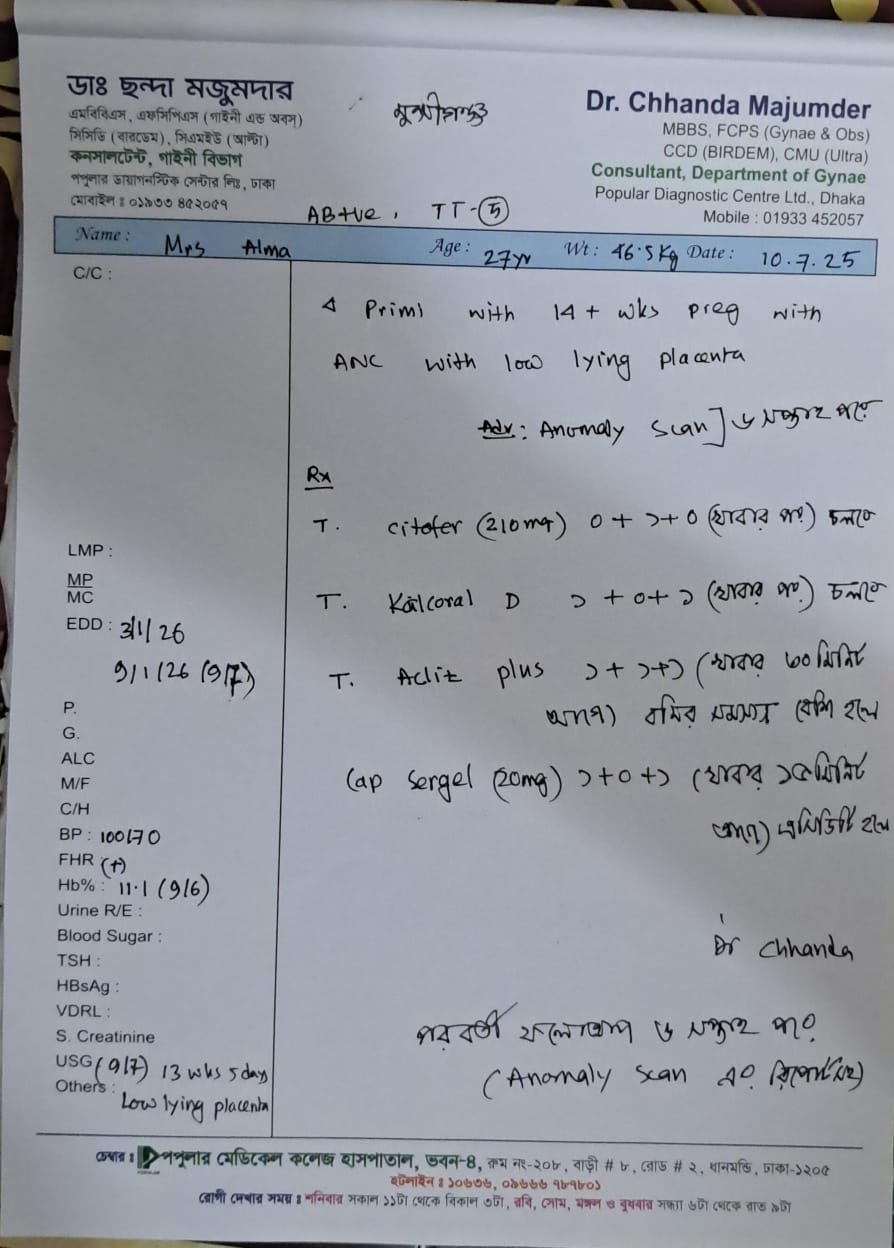 ডাঃ ছন্দা মজুমদার
এমবিবিএস, এফসিপিএস (গাইনী এন্ড অবস)
সিসিডি (বারডেম), সিএমইউ (আল্ট্রা)
কনসালটেন্ট, গাইনী বিভাগ
পপুলার ডায়াগনস্টিক সেন্টার লিঃ, ঢাকা
মোবাইল ঃ ০১৯৩৩ ৪৫২০৫৭
মুন্সীগঞ্জ
Dr. Chhanda Majumder
MBBS, FCPS (Gynae & Obs)
CCD (BIRDEM), CMU (Ultra)
Consultant, Department of Gynae
Popular Diagnostic Centre Ltd., Dhaka
Mobile : 01933 452057
AB+ve, TT-5
Name : Mrs Alma Age : 27yr Wt : 46.5 Kg Date : 10.7.25
C/C :
LMP :
MP
MC
EDD : 3/1/26
9/1/26 (9/7)
P.
G.
ALC
M/F
C/H
BP : 100/70
FHR (+)
Hb% : 11.1 (9/6)
Urine R/E :
Blood Sugar :
TSH :
HBsAg :
VDRL :
S. Creatinine
USG (9/7) 13 wks 5 day
Others :
Low lying placenta
Δ Primi with 14+ wks preg with
ANC with low lying placenta
Adv: Anomaly scan] ৬ সপ্তাহ পরে
Rx
T. Citofer (210mg) 0+১+0 (খাবার পর) চলবে
T. Kalcoral D ১+0+১ (খাবার পর) চলবে
T. Acliz plus ১+১+১ (খাবার ৩০ মিনিট
আগে) বমির সমস্যা বেশি হলে
Cap Sergel (20mg) ১+0+১ (খাবার ১৫ মিনিট
আগে) এসিডিটি হলে
Dr Chhanda
পরবর্তী ফলোআপ ৬ সপ্তাহ পর
(Anomaly scan এর রিপোর্ট সহ)
চেম্বার ঃ পপুলার মেডিকেল কলেজ হাসপাতাল, ভবন-4, রুম নং-২০৮, বাড়ী # ৮, রোড # ২, ধানমন্ডি, ঢাকা-১২০৫
হটলাইন ঃ ১০৬৩৬, ০৯৬৬৬ ৭৮৭৮০১
রোগী দেখার সময় ঃ শনিবার সকাল ১১টা থেকে বিকাল ৩টা, রবি, সোম, মঙ্গল ও বুধবার সন্ধ্যা ৬টা থেকে রাত ৯টা